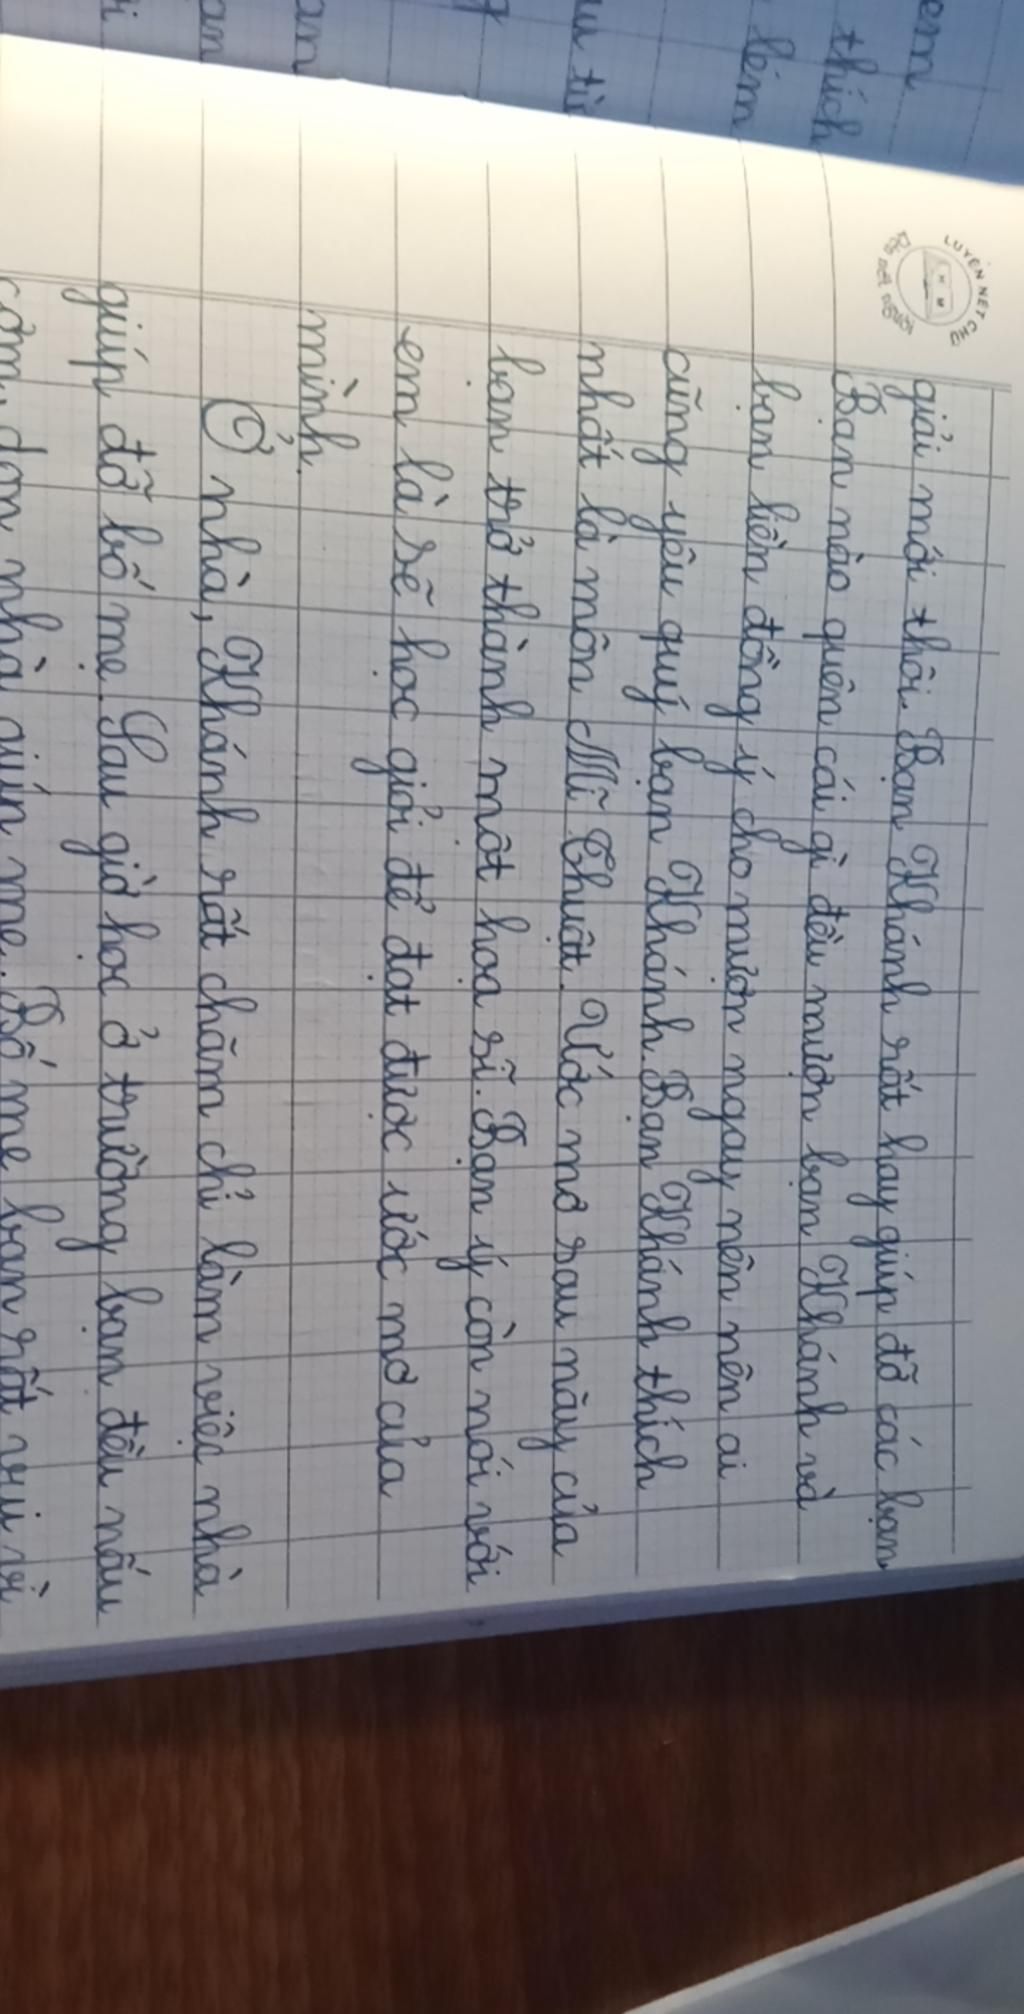 em
thích
lém
LUYỆN NÉT CHỮ
giải mới thôi. Bạn Khánh rất hay giúp đỡ các bạn.
Bạn nào quên cái gì đều mượn bạn Khánh và
bạn liền đồng ý cho mượn ngay nên nên ai
cũng yêu quý bạn Khánh. Bạn Khánh thích
nhất là môn Mĩ Thuật. Ước mơ sau này của
bạn trở thành một họa sĩ. Bạn ý còn nói với
em là sẽ học giỏi để đạt được ước mơ của
mình.
Ở nhà, Khánh rất chăm chỉ làm việc nhà
giúp đỡ bố mẹ. Sau giờ học ở trường bạn đều nấu
cơm, dọn nhà giúp mẹ. Bố mẹ bạn rất vui vì